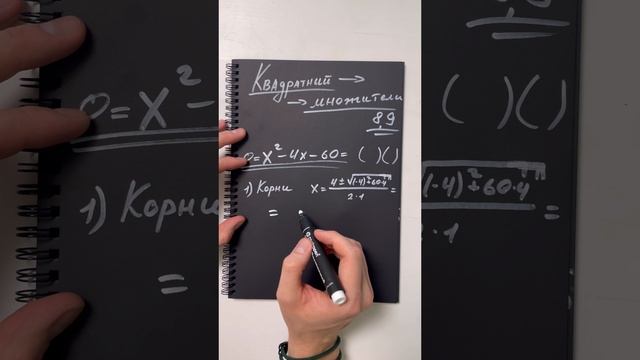 Квадратний →
→ множители
8,9
0=x²-4x-60= ( )( )
1) Корни x = (4±√((-4)²+60·4))/(2·1) =
=